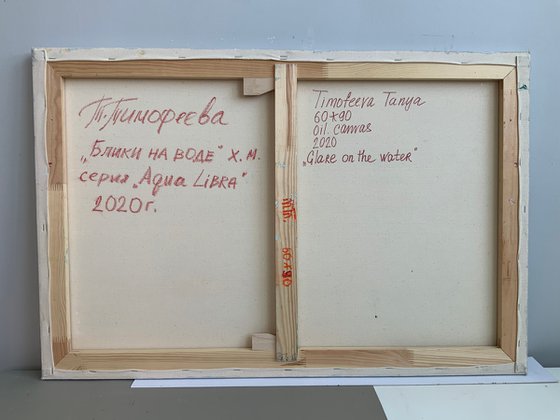 Т.Тимофеева
„Блики на воде" х.м.
серия „Aqua Libra"
2020г.
Timofeeva Tanya
60×90
Oil. canvas
2020
„Glare on the water"
60×90